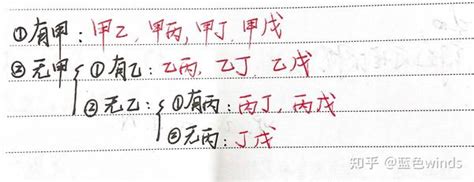 ①有甲：甲乙，甲丙，甲丁，甲戊
②无甲{①有乙：乙丙，乙丁，乙戊
②无乙：{①有丙：丙丁，丙戊
②无丙：丁戊
知乎 @蓝色winds